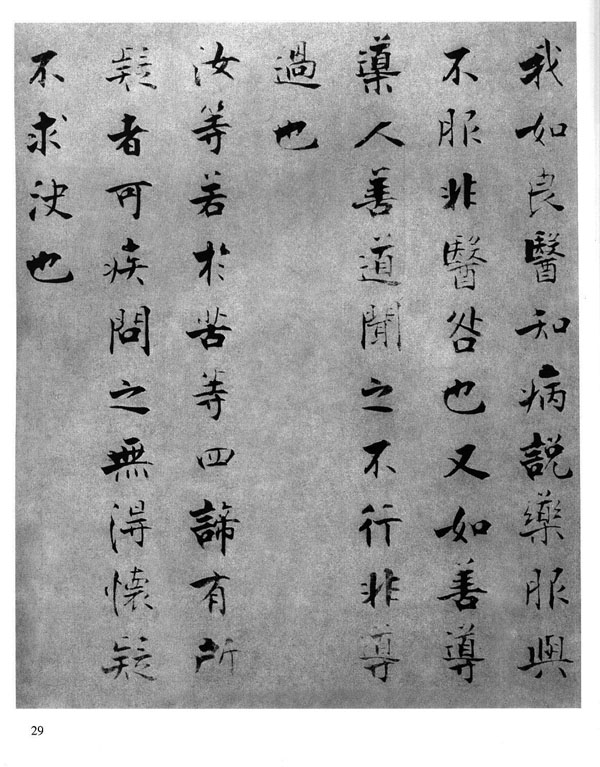 我如良醫知病說藥服與
不服非醫咎也又如善導
導人善道聞之不行非導
過也
汝等若於苦等四諦有所
疑者可疾問之無得懷疑
不求決也
29